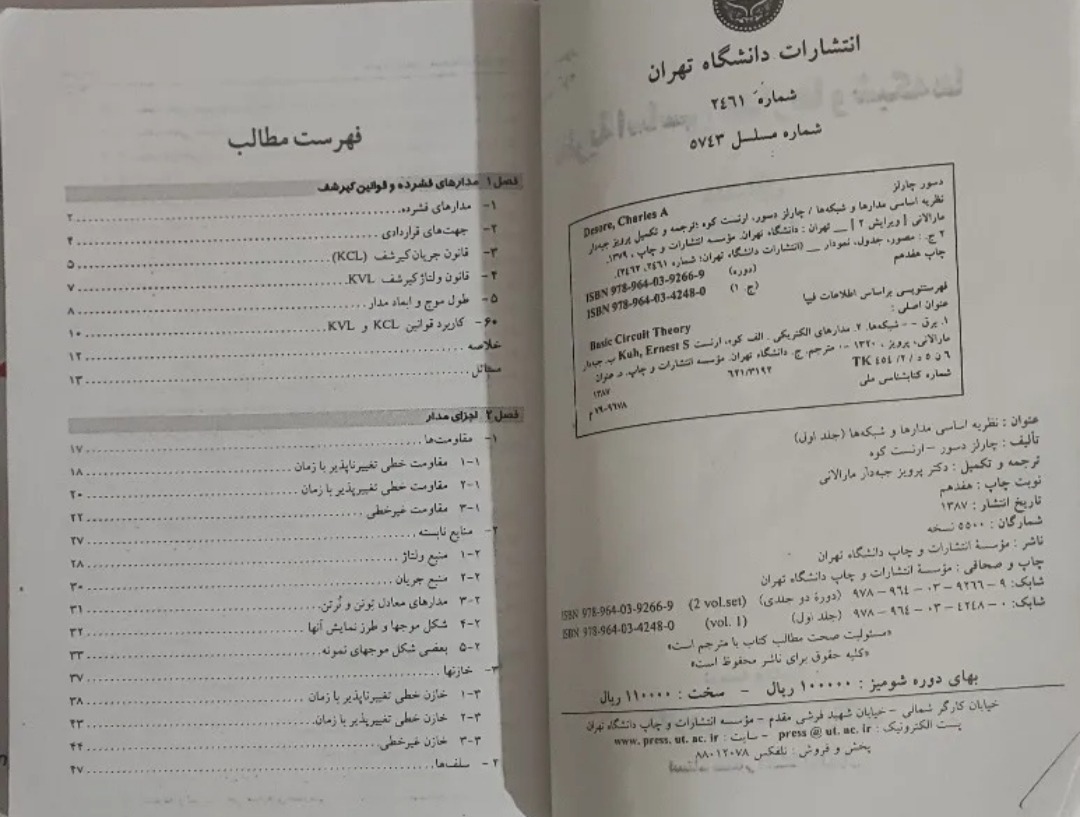 انتشارات دانشگاه تهران
شماره ۲٤٦۱
شماره مسلسل ۵۷٤۳
دسور چارلز
Desore, Charles A
نظریه اساسی مدارها و شبکه‌ها / چارلز دسور، ارنست کوه ؛ ترجمه و تکمیل پرویز جبه‌دار
مارالانی [ویرایش ۲] ـــ تهران : دانشگاه تهران، مؤسسه انتشارات و چاپ ، ۱۳۷۹.
۲ ج. : مصور، جدول، نمودار ـــ (انتشارات دانشگاه تهران؛ شماره ۲٤٦۱، ۲٤٦۲).
چاپ هفدهم
ISBN 978-964-03-9266-9 (دوره)
ISBN 978-964-03-4248-0 (ج. ۱)
فهرستنویسی براساس اطلاعات فیپا
عنوان اصلی :
Basic Circuit Theory
۱. برق -- شبکه‌ها. ۲. مدارهای الکتریکی . الف کوه، ارنست Kuh, Ernest S ب. جبه‌دار
مارالانی، پرویز ، ۱۳۲۰ -. مترجم. ج. دانشگاه تهران. مؤسسه انتشارات و چاپ. د. عنوان
٦ ن ۵ د / ۲/ ٤۵٤ TK
٦۲۱/۳۱۹۲
۱۳۸۷
شماره کتابشناسی ملی
۹٦۷۸-۷۹ م
عنوان : نظریه اساسی مدارها و شبکه‌ها (جلد اول)
تألیف : چارلز دسور - ارنست کوه
ترجمه و تکمیل : دکتر پرویز جبه‌دار مارالانی
نوبت چاپ : هفدهم
تاریخ انتشار : ۱۳۸۷
شمارگان : ۵۵۰۰ نسخه
ناشر : مؤسسهٔ انتشارات و چاپ دانشگاه تهران
چاپ و صحافی : مؤسسهٔ انتشارات و چاپ دانشگاه تهران
شابک : ۹ - ۹۲٦٦ - ۰۳ - ۹٦٤ - ۹۷۸ (دورهٔ دو جلدی) ISBN 978-964-03-9266-9 (2 vol.set)
شابک : ۰ - ٤۲٤۸ - ۰۳ - ۹٦٤ - ۹۷۸ (جلد اول) ISBN 978-964-03-4248-0 (vol. 1)
«مسئولیت صحت مطالب کتاب با مترجم است»
«کلیه حقوق برای ناشر محفوظ است»
بهای دوره شومیز : ۱۰۰۰۰۰ ریال - سخت : ۱۱۰۰۰۰ ریال
خیابان کارگر شمالی - خیابان شهید فرشی مقدم - مؤسسه انتشارات و چاپ دانشگاه تهران
پست الکترونیک : press @ ut. ac. ir - سایت : www. press. ut. ac. ir
پخش و فروش : تلفکس ۸۸۰۱۲۰۷۸
فهرست مطالب
فصل ۱ مدارهای فشرده و قوانین کیرشف
۱- مدارهای فشرده ۲
۲- جهت‌های قراردادی ۴
۳- قانون جریان کیرشف (KCL) ۵
۴- قانون ولتاژ کیرشف KVL ۷
۵- طول موج و ابعاد مدار ۸
۶۰- کاربرد قوانین KCL و KVL ۱۰
خلاصه ۱۲
مسائل ۱۳
فصل ۲ اجزای مدار
۱- مقاومت‌ها ۱۷
۱-۱ مقاومت خطی تغییرناپذیر با زمان ۱۸
۲-۱ مقاومت خطی تغییرپذیر با زمان ۲۰
۳-۱ مقاومت غیرخطی ۲۲
۲- منابع نابسته ۲۷
۱-۲ منبع ولتاژ ۲۸
۲-۲ منبع جریان ۳۰
۳-۲ مدارهای معادل تونن و نُرتن ۳۱
۴-۲ شکل موجها و طرز نمایش آنها ۳۲
۵-۲ بعضی شکل موجهای نمونه ۳۳
۳- خازنها ۳۷
۱-۳ خازن خطی تغییرناپذیر با زمان ۳۸
۲-۳ خازن خطی تغییرپذیر با زمان ۴۳
۳-۳ خازن غیرخطی ۴۴
۴- سلف‌ها ۴۷